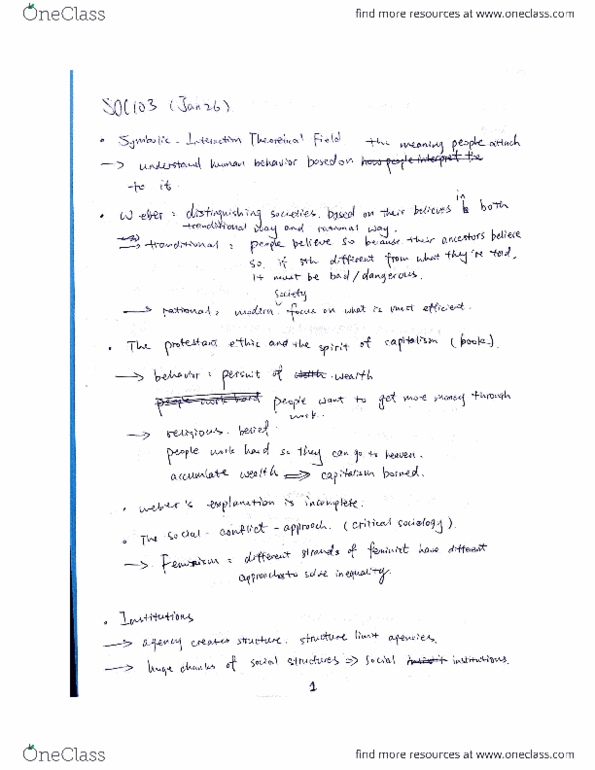 OneClass find more resources at www.oneclass.com
SOC103 (Jan 26)
• Symbolic - Interaction Theoretical Field the meaning people attach
→ understand human behavior based on how people interpret the
to it
• Weber : distinguishing societies. based on their believes in both
tranditional way and rational way.
→ tranditional : people believe so because their ancestors believe
so. if sth different from what they're told,
it must be bad/dangerous.
society
→ rational : modern focus on what is most efficient.
• The protestant ethic and the spirit of capitalism (book).
→ behavior : persuit of wealth
people work hard people want to get more money through
work.
→ religious. belief
people work hard so they can go to heaven.
accumlate wealth ⇒ capitalism borned.
• Weber's explanation is incomplete.
• The social - conflict - approach. (critical sociology).
→ Feminism : different strands of feminist have different
approaches to solve inequality.
• Institutions
→ agency creates structure. structure limit agencies.
→ huge chunks of social structures ⇒ social institutions.
1
OneClass find more resources at www.oneclass.com